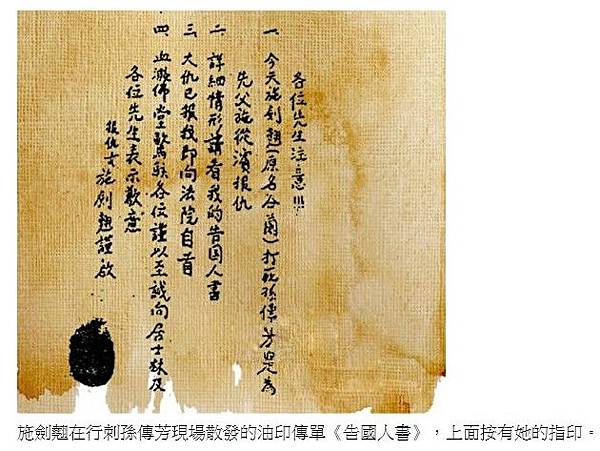 各位先生注意!!!
一 今天施劍翹(原名谷蘭)打死孫傳芳是為
先父施從濱報仇
二 詳細情形請看我的告国人書
三 大仇已報我即向法院自首
四 血濺佛堂驚駭各位謹以至誠向居士林及
各位先生表示歉意
報仇女施劍翹謹啟
施劍翹在行刺孫傳芳現場散發的油印傳單《告國人書》，上面按有她的指印。